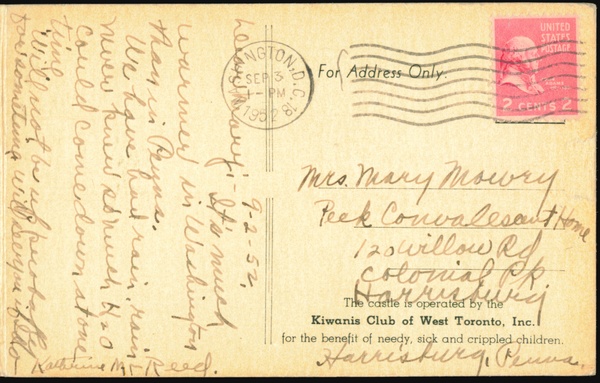 WASHINGTON, D.C. 18
SEP 3
1 - PM
1952
UNITED
STATES
POSTAGE
2 CENTS 2
For Address Only.
9-2-52.
Dear Mary:- It's much
warmer in Washington
than in Penna.
We have had rain, rain
never knew so much H2O
could come down at one
time
Will not be up probably
for sometime, will be
Katherine M. Reed.
Mrs. Mary Mowry
Peek Convalesant Home
120 Willow Rd
Colonial Pk
Harrisburg
The castle is operated by the
Kiwanis Club of West Toronto, Inc.
for the benefit of needy, sick and crippled children.
Harrisburg, Penna.